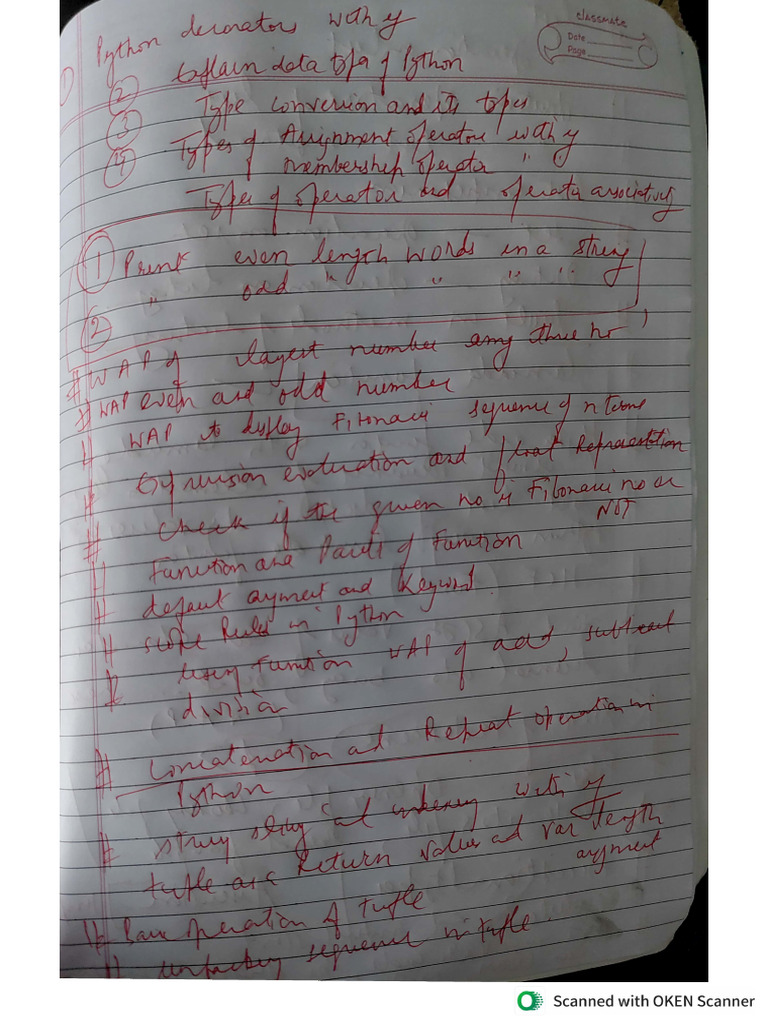 classmate
Date
Page
① Python decorators with eg
② Explain data type of Python
③ Type conversion and its types
④ Types of Assignment operator with eg
" of membership operator "
Types of operator and operator associativity
① Print even length words in a string
" odd " " " "
②
# WAP of largest number among three no
# WAP even and odd number
# WAP to display Fibonacci sequence of n terms
# Expression evaluation and float Representation
# Check if the given no is Fibonacci no or
NOT
# Function and Parts of Function
# default argument and Keyword
# scope Rules in Python
# Using Function WAP of add, subtract
division
# Concatenation and Repeat operation in
Python
# string slicing and indexing with eg
tuple as a Return Values and var length
argument
# Basic operation of tuple
# unpacking sequence in tuple
Scanned with OKEN Scanner